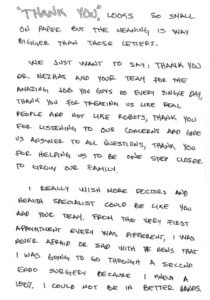 "THANK YOU" LOOKS SO SMALL
ON PAPER BUT THE MEANING IS WAY
BIGGER THAN THOSE LETTERS.
WE JUST WANT TO SAY: THANK YOU
DR NEZHAT AND YOUR TEAM FOR THE
AMAZING JOB YOU GUYS DO EVERY SINGLE DAY,
THANK YOU FOR TREATING US LIKE REAL
PEOPLE AND NOT LIKE ROBOTS, THANK YOU
FOR LISTENING TO OUR CONCERNS AND GIVE
US ANSWER TO ALL QUESTIONS, THANK YOU
FOR HELPING US TO BE ONE STEP CLOSER
TO GROW OUR FAMILY.
I REALLY WISH MORE DOCTORS AND
HEALTH SPECIALIST COULD BE LIKE YOU
AND YOUR TEAM. FROM THE VERY FIRST
APPOINTMENT EVERY WAS DIFFERENT, I WAS
NEVER AFRAID OR SAD WITH THE NEWS THAT
I WAS GOING TO GO THROUGH A SECOND
ENDO SURGERY BECAUSE I KNEW A
100%. I COULD NOT BE IN BETTER HANDS.